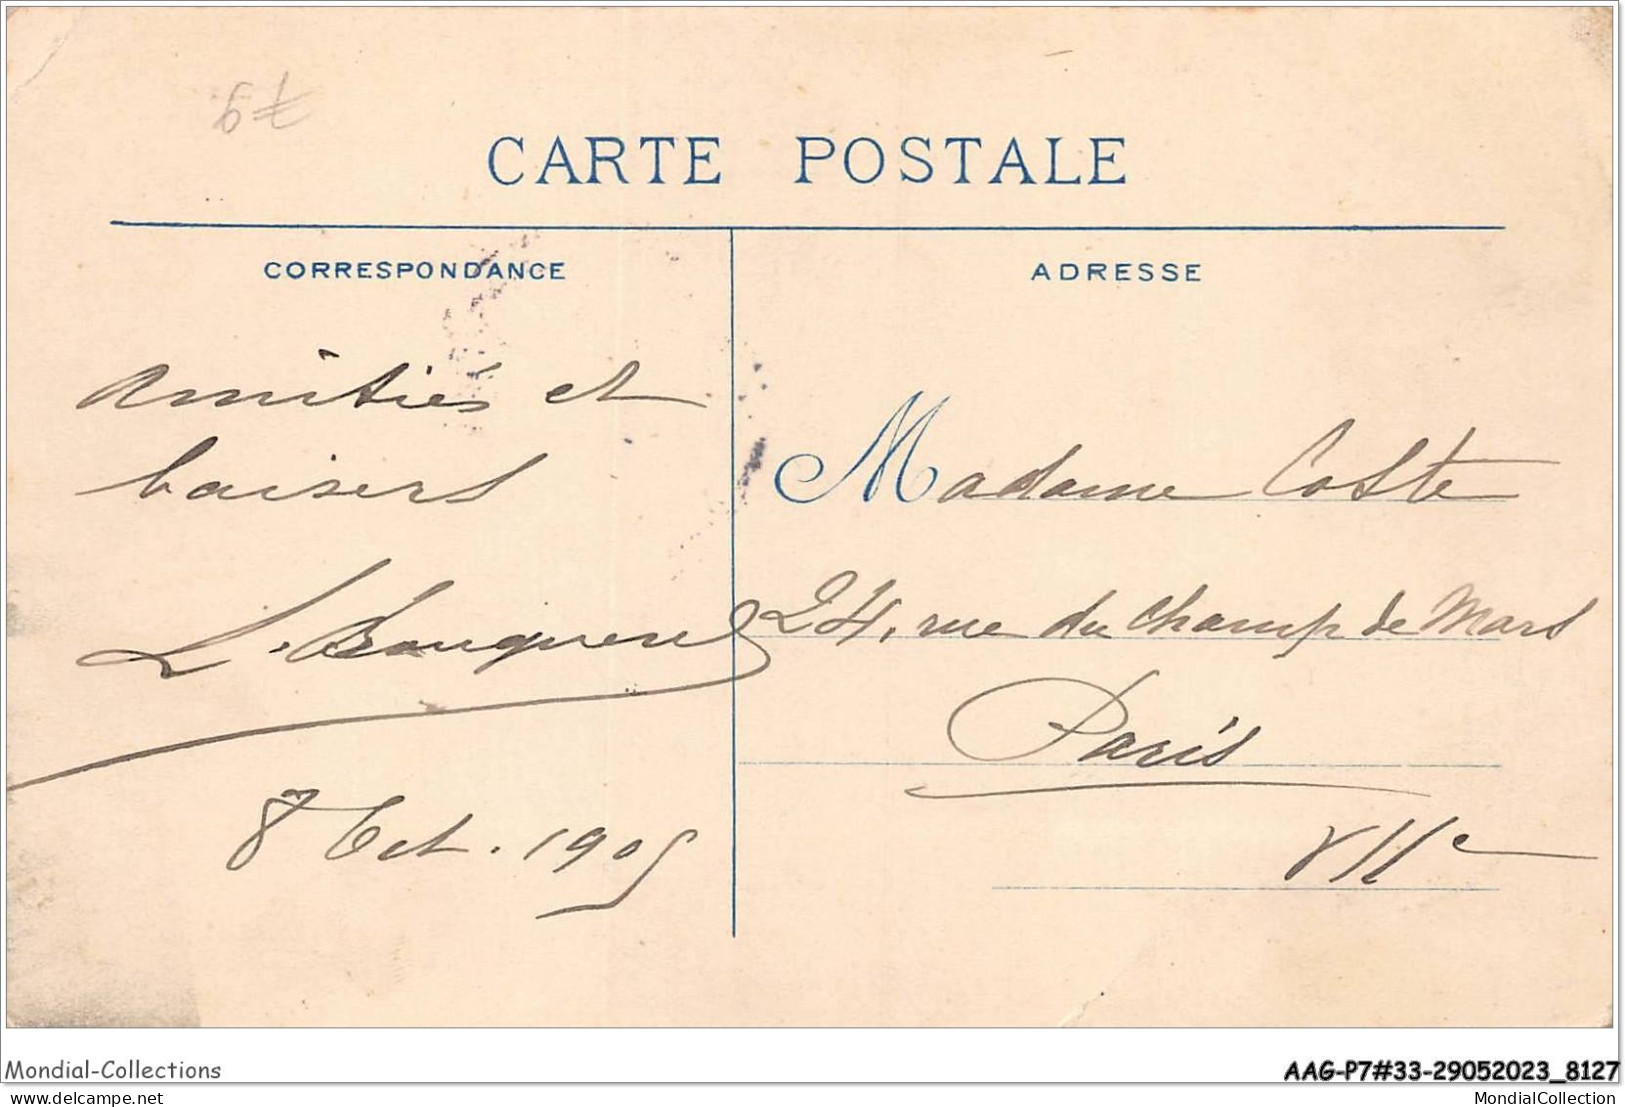 CARTE POSTALE
CORRESPONDANCE
Amitiés et
baisers
8 Oct. 1905
ADRESSE
Madame Coste
24, rue du Champ de Mars
Paris
VIIe
Mondial-Collections
AAG-P7#33-29052023_8127
delcampe.net
MondialCollection